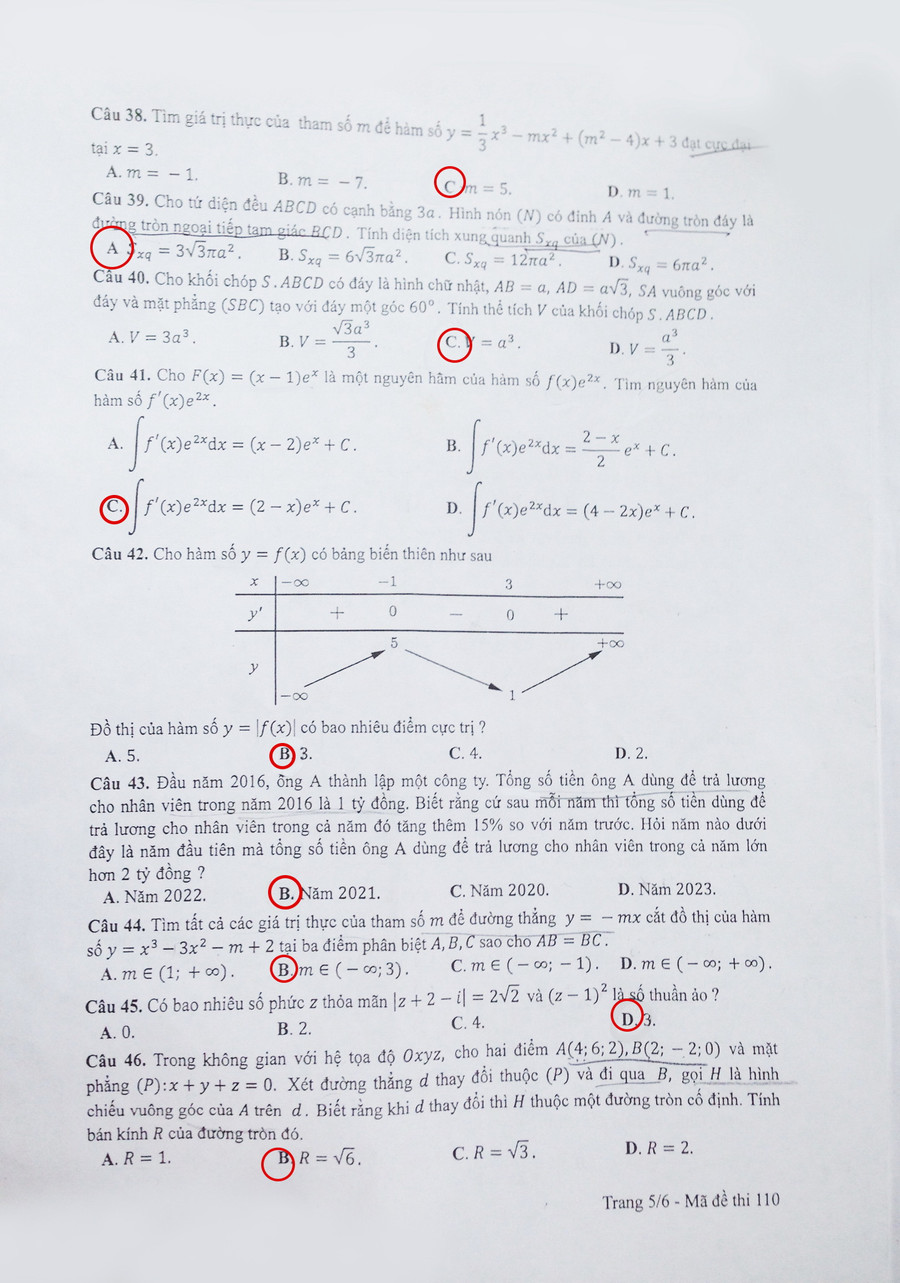 Câu 38. Tìm giá trị thực của tham số m để hàm số y = 1/3 x³ − mx² + (m² − 4)x + 3 đạt cực đại
tại x = 3.
A. m = − 1. B. m = − 7. C. m = 5. D. m = 1.
Câu 39. Cho tứ diện đều ABCD có cạnh bằng 3a. Hình nón (N) có đỉnh A và đường tròn đáy là
đường tròn ngoại tiếp tam giác BCD. Tính diện tích xung quanh Sxq của (N).
A Sxq = 3√3πa². B. Sxq = 6√3πa². C. Sxq = 12πa². D. Sxq = 6πa².
Câu 40. Cho khối chóp S.ABCD có đáy là hình chữ nhật, AB = a, AD = a√3, SA vuông góc với
đáy và mặt phẳng (SBC) tạo với đáy một góc 60°. Tính thể tích V của khối chóp S.ABCD.
A. V = 3a³. B. V = √3a³/3. C. V = a³. D. V = a³/3.
Câu 41. Cho F(x) = (x − 1)eˣ là một nguyên hàm của hàm số f(x)e²ˣ. Tìm nguyên hàm của
hàm số f′(x)e²ˣ.
A. ∫f′(x)e²ˣdx = (x − 2)eˣ + C. B. ∫f′(x)e²ˣdx = (2 − x)/2 eˣ + C.
C. ∫f′(x)e²ˣdx = (2 − x)eˣ + C. D. ∫f′(x)e²ˣdx = (4 − 2x)eˣ + C.
Câu 42. Cho hàm số y = f(x) có bảng biến thiên như sau
x −∞ −1 3 +∞
y′ + 0 − 0 +
5 +∞
y
−∞ 1
Đồ thị của hàm số y = |f(x)| có bao nhiêu điểm cực trị ?
A. 5. B 3. C. 4. D. 2.
Câu 43. Đầu năm 2016, ông A thành lập một công ty. Tổng số tiền ông A dùng để trả lương
cho nhân viên trong năm 2016 là 1 tỷ đồng. Biết rằng cứ sau mỗi năm thì tổng số tiền dùng để
trả lương cho nhân viên trong cả năm đó tăng thêm 15% so với năm trước. Hỏi năm nào dưới
đây là năm đầu tiên mà tổng số tiền ông A dùng để trả lương cho nhân viên trong cả năm lớn
hơn 2 tỷ đồng ?
A. Năm 2022. B. Năm 2021. C. Năm 2020. D. Năm 2023.
Câu 44. Tìm tất cả các giá trị thực của tham số m để đường thẳng y = − mx cắt đồ thị của hàm
số y = x³ − 3x² − m + 2 tại ba điểm phân biệt A, B, C sao cho AB = BC.
A. m ∈ (1; +∞). B. m ∈ (−∞; 3). C. m ∈ (−∞; −1). D. m ∈ (−∞; +∞).
Câu 45. Có bao nhiêu số phức z thỏa mãn |z + 2 − i| = 2√2 và (z − 1)² là số thuần ảo ?
A. 0. B. 2. C. 4. D. 3.
Câu 46. Trong không gian với hệ tọa độ Oxyz, cho hai điểm A(4; 6; 2), B(2; − 2; 0) và mặt
phẳng (P): x + y + z = 0. Xét đường thẳng d thay đổi thuộc (P) và đi qua B, gọi H là hình
chiếu vuông góc của A trên d. Biết rằng khi d thay đổi thì H thuộc một đường tròn cố định. Tính
bán kính R của đường tròn đó.
A. R = 1. B. R = √6. C. R = √3. D. R = 2.
Trang 5/6 - Mã đề thi 110